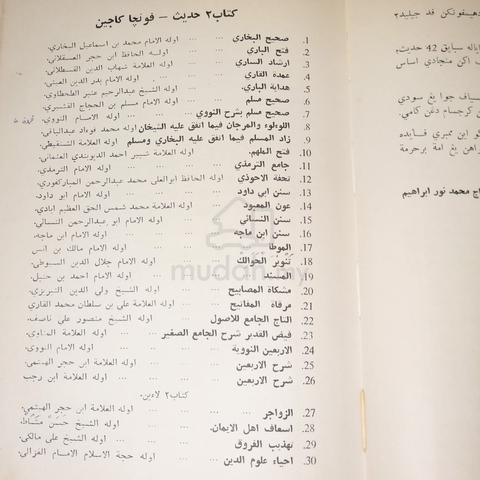 كتاب٢ حديث – فونچا كاجين
1. صحيح البخاري ... اوله الامام محمد بن اسماعيل البخاري.
2. فتح الباري ... اوله الحافظ ابن حجر العسقلاني.
3. ارشاد الساري ... اوله العلامة شهاب الدين القسطلاني.
4. عمدة القاري ... اوله الامام بدر الدين العيني.
5. هداية الباري ... اوله الشيخ عبدالرحيم عنبر الطحطاوي.
6. صحيح مسلم ... اوله الامام مسلم بن الحجاج القشيري.
7. صحيح مسلم بشرح النووي ... اوله الامام النووي.
8. اللؤلوء والمرجان فيما اتفق عليه الشيخان اوله محمد فوءاد عبدالباقي.
9. زاد المسلم فيما اتفق عليه البخاري ومسلم اوله العلامة الشنقيطي.
10. فتح الملهم. ... اوله العلامة شبير احمد الديوبندي العثماني.
11. جامع الترمذي ... اوله الامام الترمذي.
12. تحفة الاحوذي ... اوله الحافظ ابوالعلى محمد عبدالرحمن المباركفوري.
13. سنن ابي داود ... اوله الامام ابو داود.
14. عون المعبود ... اوله العلامة محمد شمس الحق العظيم ابادي.
15. سنن النسائي ... اوله الامام ابو عبدالرحمن النسائي.
16. سنن ابن ماجه ... اوله الامام ابن ماجه.
17. الموطا ... اوله الامام مالك بن انس
18. تنوير الحوالك ... اوله الامام جلال الدين السيوطي.
19. المسند ... اوله الامام احمد بن حنبل.
20. مشكاة المصابيح ... اوله الشيخ ولي الدين التبريزي.
21. مرقاة المفاتيح ... اوله العلامة على بن سلطان محمد القاري
22. التاج الجامع للاصول ... اوله الشيخ منصور على ناصف.
23. فيض القدير شرح الجامع الصغير ... اوله العلامة المناوي.
24. الاربعين النووية ... اوله الامام النووي.
25. شرح الاربعين ... اوله العلامة ابن حجر الهيتمي.
26. شرح الاربعين ... اوله العلامة ابن رجب
كتاب٢ لاءين.
27. الزواجر ... اوله العلامة ابن حجر الهيتمي.
28. اسعاف اهل الايمان. ... اوله الشيخ حسن مشاط.
29. تهذيب الفروق ... اوله الشيخ على مالكي.
30. احياء علوم الدين ... اوله حجة الاسلام الامام الغزالي.
mudah.my
سبايق 42 حديث.
اكن منجادي اساس
جوا يغ سودي
دغن كامي.
يغ امة برحرمة
محمد نور ابراهيم